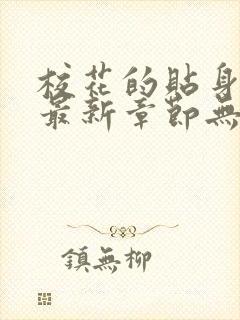 校花的貼身
最新章節無
鎮無柳